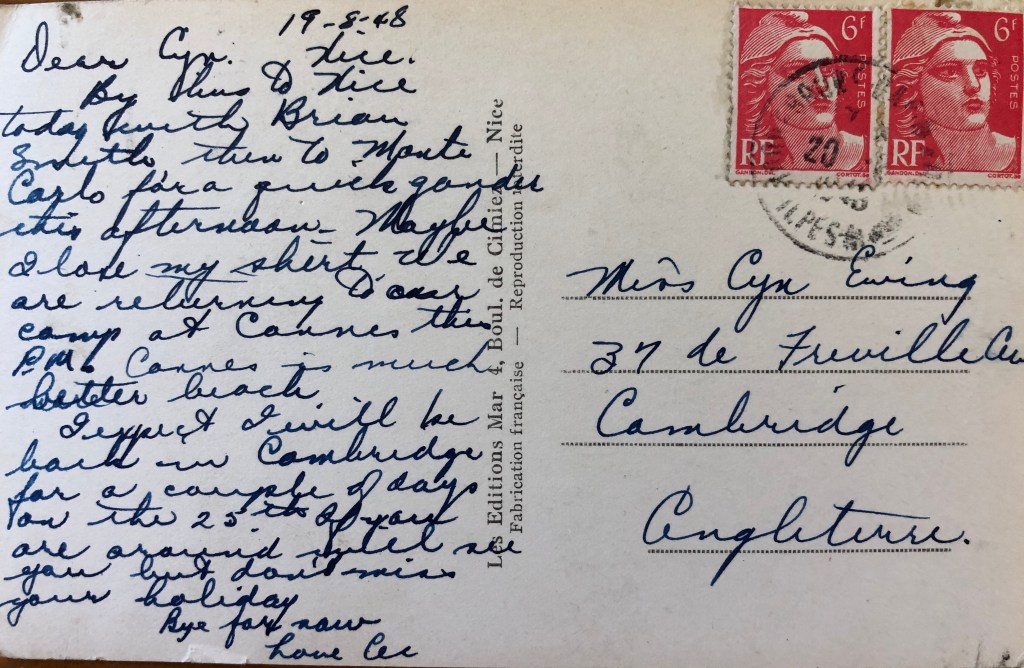 19-8-48
Dear Cyn. Nice.
By bus to Nice
today with Brian
Smith then to Monte
Carlo for a quick gander
this afternoon. Maybe
I lose my shirt. We
are returning to our
camp at Cannes this
P.M. Cannes is much
better beach
I expect I will be
back in Cambridge
for a couple of days
on the 25th If you
are around will see
you but don't miss
your holiday
Bye for now
Love Cec
Les Editions Mar 4, Boul. de Cimiez — Nice
Fabrication française — Reproduction interdite
6F
POSTES
RF
GANDON.DEL CORTOT.SC
6F
POSTES
RF
GANDON.DEL CORTOT.SC
20
ALPES
Miss Cyn Ewing
37 de Freville Av
Cambridge
Angleterre.